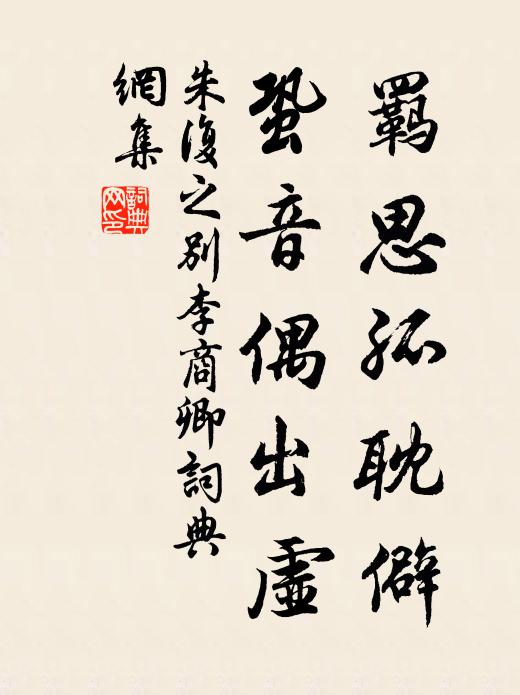 羈思孤耽僻
蛩音偶出虛
朱復之別李商卿詞典
網集
詞典網印